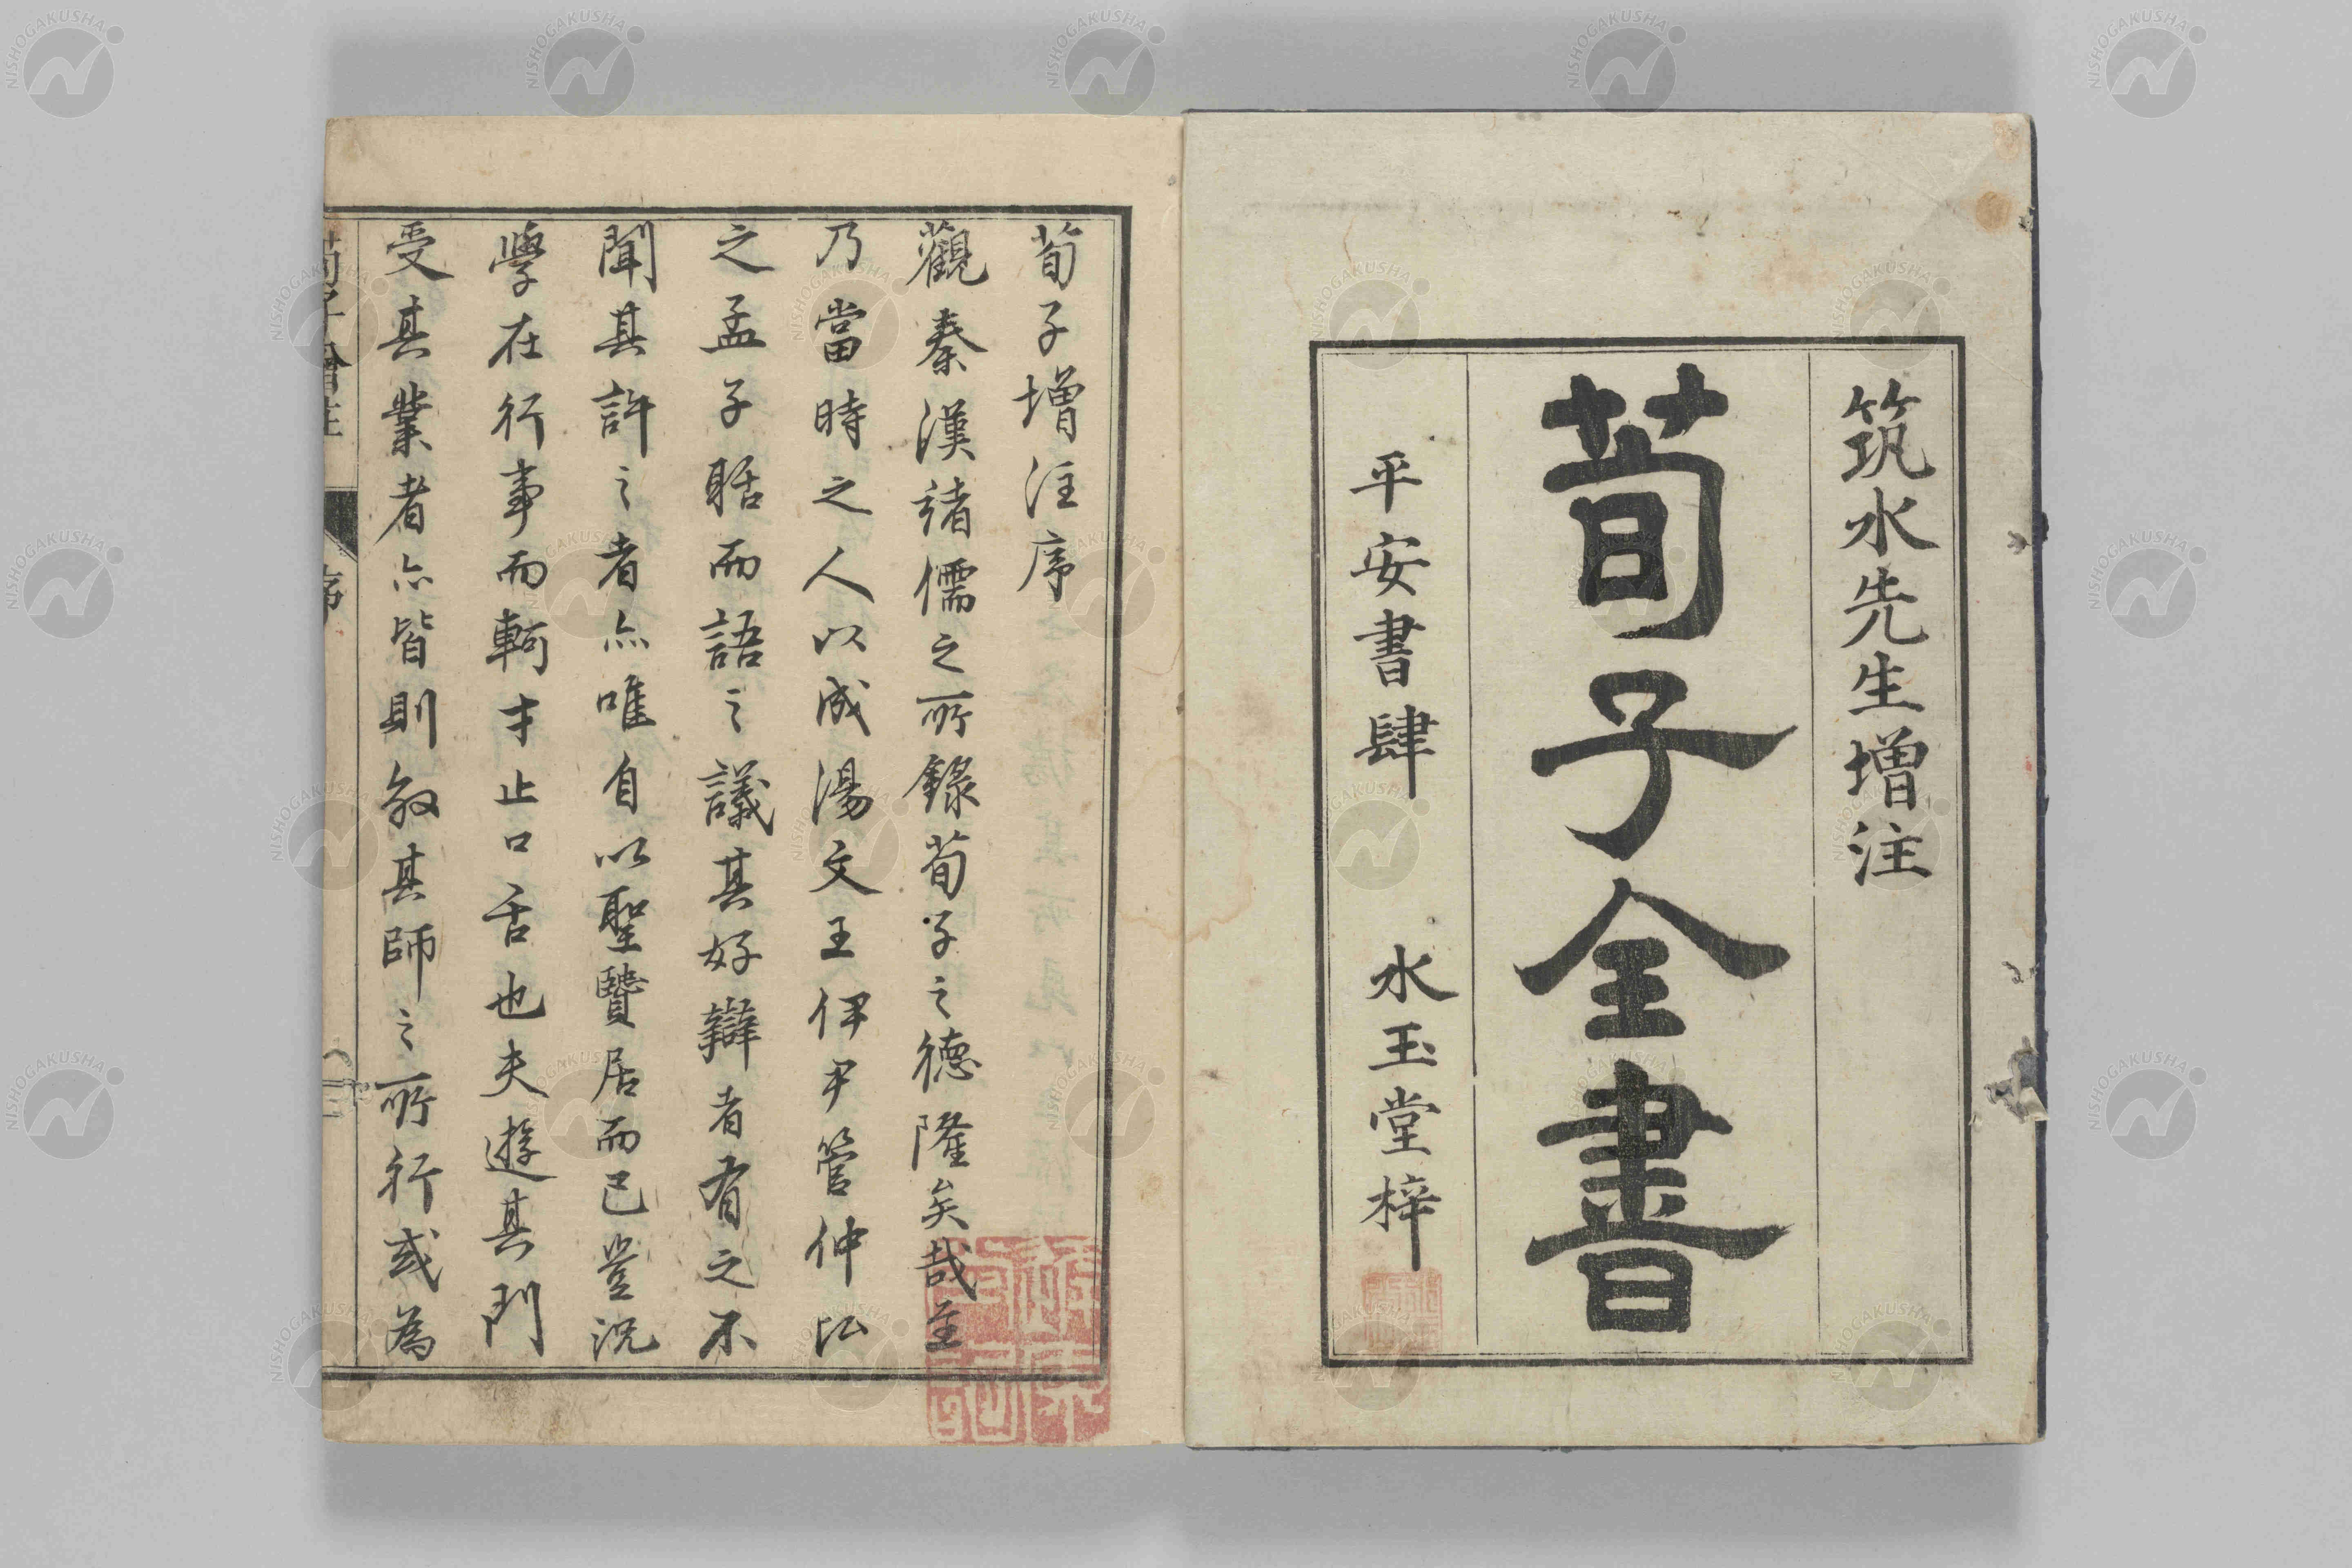 筑水先生增注
荀子全書
平安書肆 水玉堂梓
荀子增注序
觀秦漢諸儒之所錄荀子之德隆矣哉至
乃當時之人以成湯文王伊尹管仲比
之孟子聒而語之議其好辯者有之不
聞其許之者亦唯自以聖賢居而已豈況
學在行事而軻才止口舌也夫遊其門
受其業者亦皆則效其師之所行或為
荀子增注 序
NISHOGAKUSHA